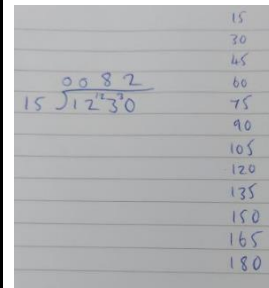 0082
15 1 2 ¹²3 ³0
15
30
45
60
75
90
105
120
135
150
165
180